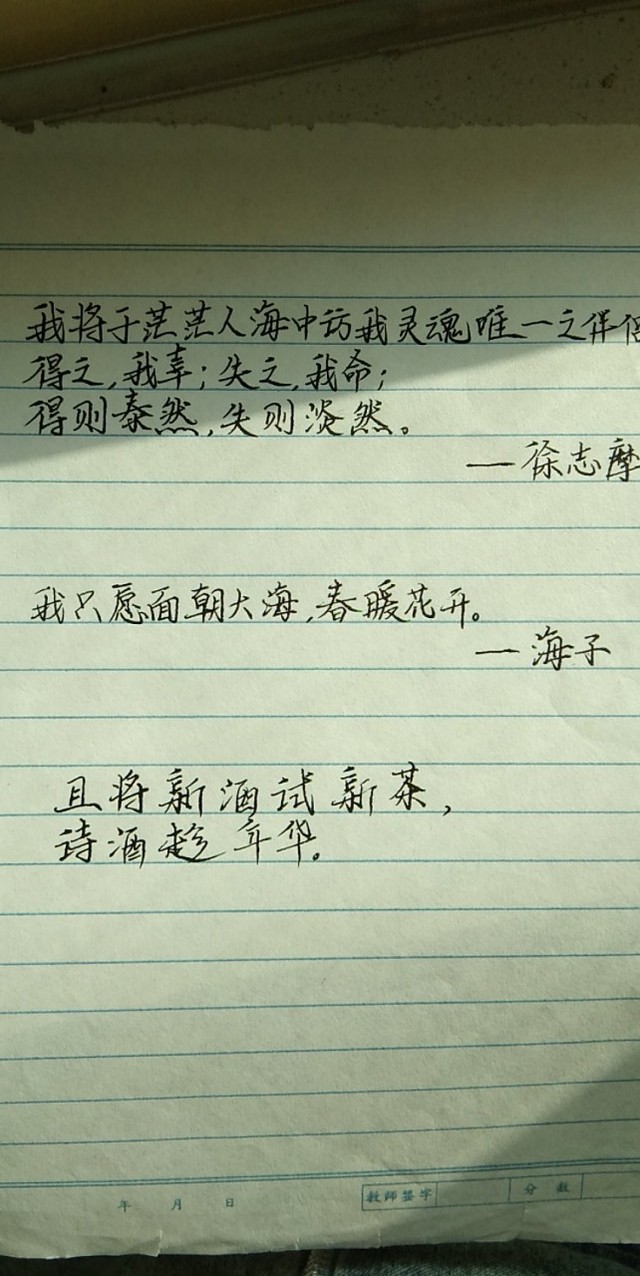 我将于茫茫人海中访我灵魂唯一之伴侣
得之,我幸;失之,我命;
得则泰然,失则淡然。
—徐志摩
我只愿面朝大海,春暖花开。
—海子
且将新酒试新茶,
诗酒趁年华。
年 月 日 教师签字 分数